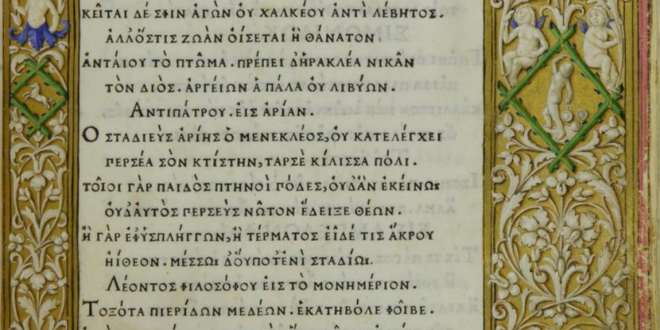 ΚΕΙΤΑΙ ΔΕ ΣΦΙΝ ἈΓῺΝ ΟΥ ΧΑΛΚΕΟΥ ἈΝΤΙ ΛΕΒΗΤΟΣ.
ἈΛΛΌΣΤΙΣ ΖΩᾺΝ ΟΙΣΕΤΑΙ Ἢ ΘΆΝΑΤΟΝ
ἈΝΤΑΊΟΥ ΤῸ ΠΤΩΜΑ. ΠΡΈΠΕΙ ΔἩΡΑΚΛΈΑ ΝΙΚᾶΝ
ΤῸΝ ΔΙΌΣ. ἈΡΓΕΊΩΝ Ἁ ΠΆΛΑ ΟΥ ΛΙΒΎΩΝ.
ἈΝΤΙΠΆΤΡΟΥ. ΕΙΣ ἈΡΊΑΝ.
Ο ΣΤΑΔΙΕῪΣ ἈΡΊΗΣ Ὁ ΜΕΝΕΚΛΈΟΣ, ΟΥ ΚΑΤΕΛΈΓΧΕΙ
ΠΕΡΣΈΑ ΣῸΝ ΚΤΊΣΤΗΝ, ΤΑΡΣῈ ΚΊΛΙΣΣΑ ΠΌΛΙ.
ΤΟΙΟΙ ΓᾺΡ ΠΑΙΔῸΣ ΠΤΗΝΟῚ ΓΌΔΕΣ, ΟΥΔᾺΝ ΕΚΕΊΝΩΙ
ΟΥΔΑΥΤῸΣ ΠΕΡΣΕῪΣ ΝΩΤΟΝ ἜΔΕΙΞΕ ΘΈΩΝ.
Ἢ ΓᾺΡ ΕΦΎΣΠΛΗΓΓΩΝ, Ἢ ΤΈΡΜΑΤΟΣ ΕΙΔΈ ΤΙΣ ἌΚΡΟΥ
ἨΪΘΕΟΝ. ΜΈΣΣΩΙ ΔΟΎΠΟΤΕΝῚ ΣΤΑΔΊΩΙ.
ΛΈΟΝΤΟΣ ΦΙΛΟΣΌΦΟΥ ΕΙΣ ΤῸ ΜΟΝΗΜΈΡΙΟΝ.
ΤΟΞΌΤΑ ΠΙΕΡΊΔΩΝ ΜΕΔΈΩΝ. ΕΚΑΤΗΒΌΛΕ ΦΟΙΒΕ.